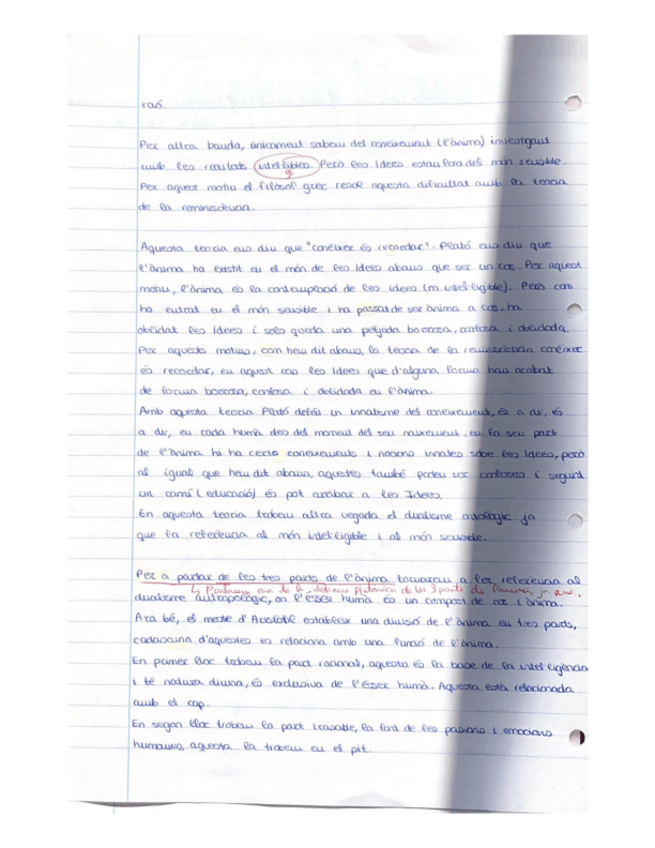 raó.
Per altra banda, únicament sabem del coneixement (l'ànima) investigant
amb les realitats intel·ligibles. Però les Idees estan fora del món sensible.
Per aquest motiu el filòsof grec resol aquesta dificultat amb la teoria
de la reminiscència.
Aquesta teoria ens diu que "conèixer és recordar". Plató ens diu que
l'ànima ha existit en el món de les Idees abans que ser un cos. Per aquest
motiu, l'ànima és la contemplació de les idees (m. intel·ligible). Però com
ha entrat en el món sensible i ha passat de ser ànima a cos, ha
oblidat les Idees i sols queda una petjada borrosa, confosa i oblidada.
Per aquests motius, com hem dit abans, la teoria de la reminiscència conèixer
és recordar, en aquest cas les Idees que d'alguna forma han acabat
de forma borrosa, confosa i oblidada en l'ànima.
Amb aquesta teoria Plató defèn un innatisme del coneixement, és a dir, és
a dir, en cada humà des del moment del seu naixement, en la seu part
de l'ànima hi ha certs coneixements i nocions innates sobre les Idees, però
al igual que hem dit abans, aquestes també poden ser confoses i seguint
un camí (educació) és pot arribar a les Idees.
En aquesta teoria trobem altra vegada el dualisme ontològic ja
que fa referència al món intel·ligible i al món sensible.
Per a parlar de les tres parts de l'ànima tornarem a fer referència al
↳ Partirem de la platònica de les 3 parts de l'ànima, ja que,
dualisme antropològic, on l'ésser humà és un compost de cos i ànima.
Ara bé, el mestre d'Aristòtil estableix una divisió de l'ànima en tres parts,
cadascuna d'aquestes es relaciona amb una funció de l'ànima.
En primer lloc trobem la part racional, aquesta és la base de la intel·ligència
i té natura divina, és exclusiva de l'ésser humà. Aquesta està relacionada
amb el cap.
En segon lloc trobem la part irascible, la font de les passions i emocions
humanes, aquesta la trobem en el pit.